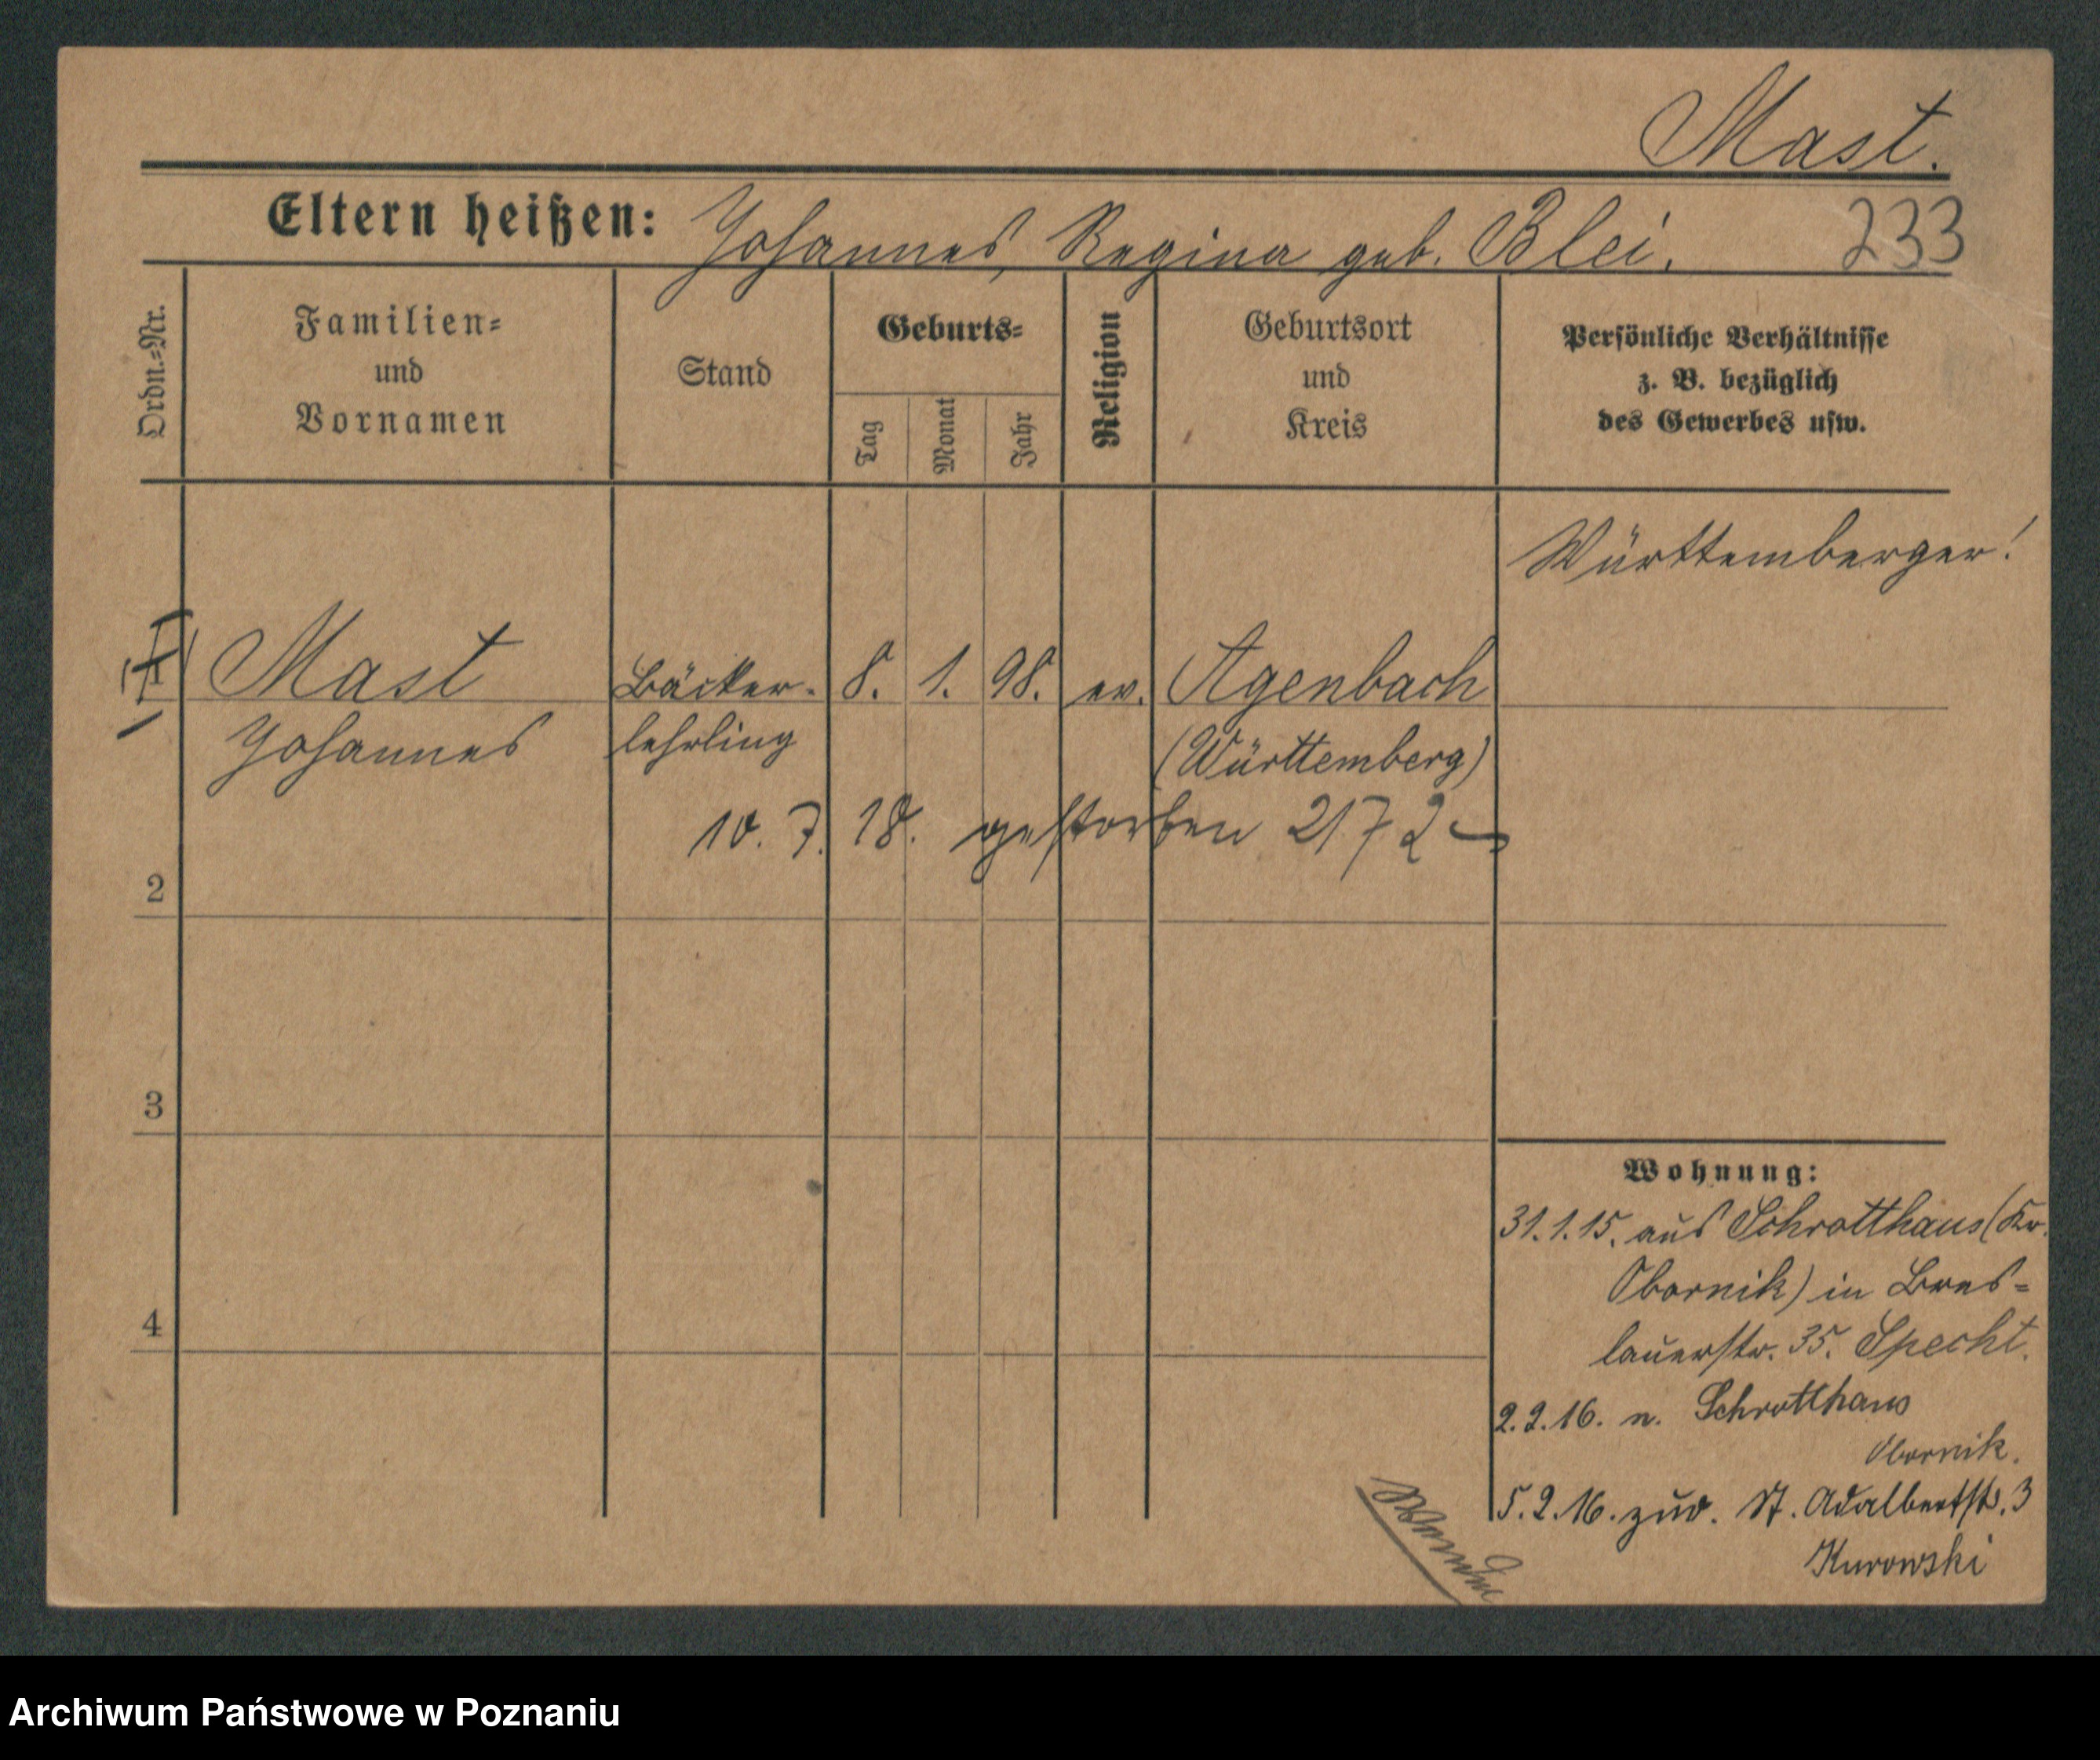 Mast.
Eltern heißen: Johannes, Regina geb. Blei. 233
Ordn.=Nr.
Familien=
und
Vornamen
Stand
Geburts=
Tag
Monat
Jahr
Religion
Geburtsort
und
Kreis
Persönliche Verhältnisse
z. B. bezüglich
des Gewerbes usw.
Württemberger!
Mast Bäcker- 8. 1. 98. ev. Agenbach
Johannes lehrling (Württemberg)
10. 7. 18. gestorben 2172
2
3
4
Wohnung:
31.1.15. aus Schrotthaus (Kr.
Obornik) in Bres=
lauerstr. 35. Specht.
2.2.16. n. Schrotthaus
Obornik.
5.2.16. zur. St. Adalbertstr. 3
Kurowski
Wenden
Archiwum Państwowe w Poznaniu